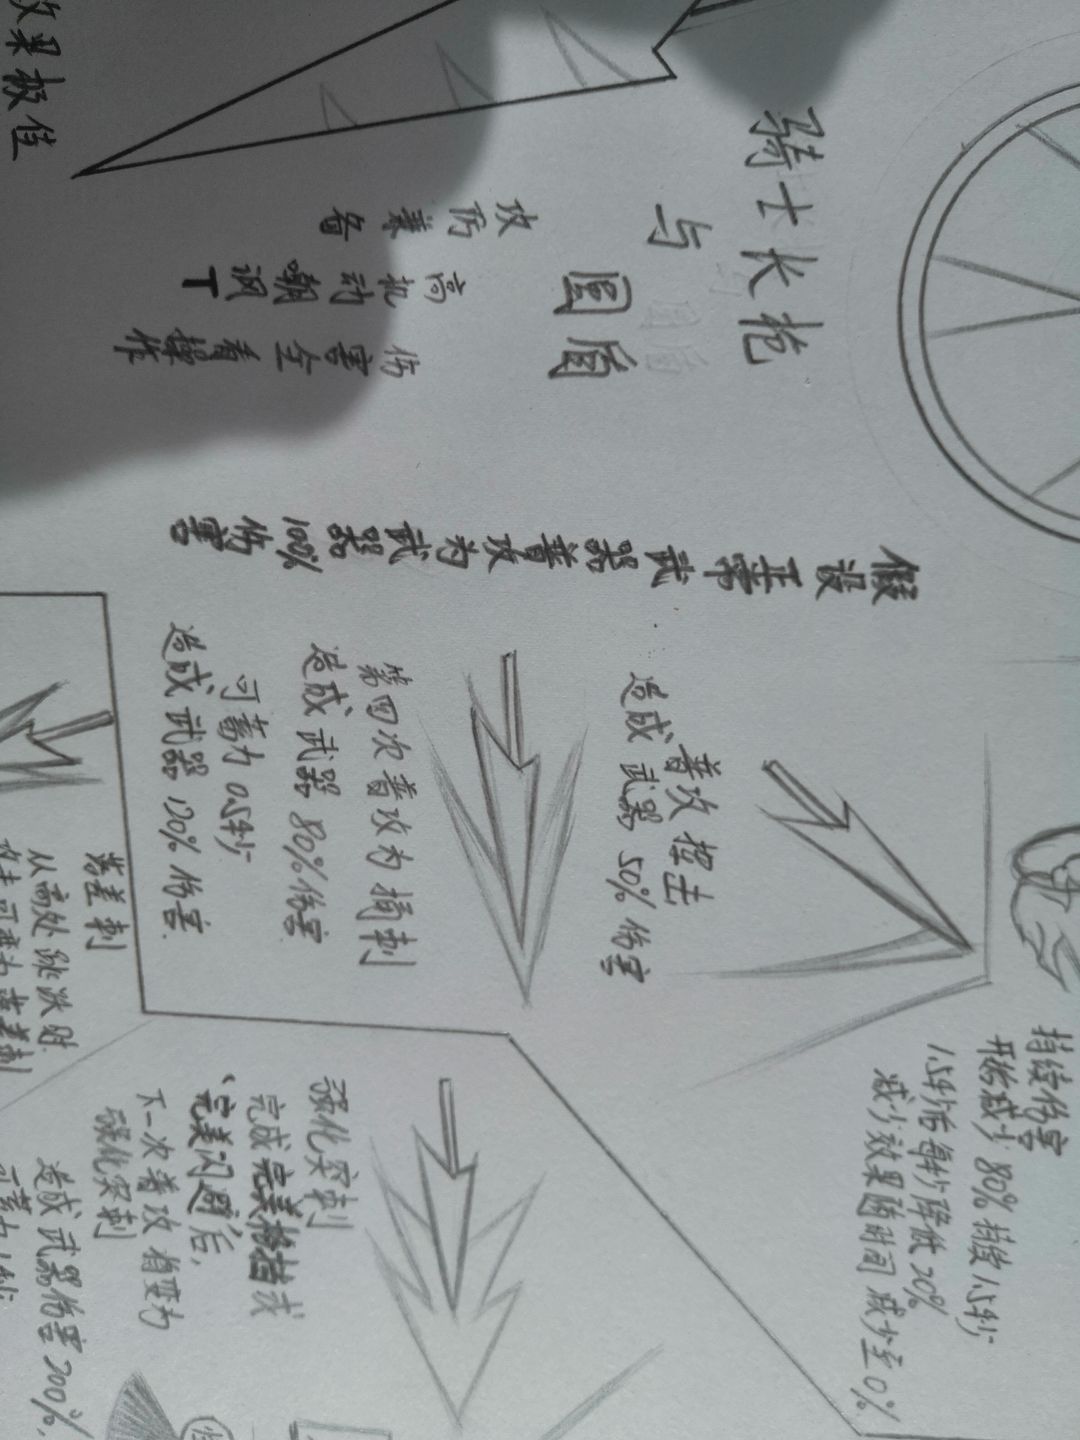 骑士长枪
与
圆盾
攻防兼备
高机动嘲讽T
伤害全看操作
效果极佳
假设正常武器普攻为武器100%伤害
普攻 挥击
造成 武器 50% 伤害
第四次普攻为 捅刺
造成 武器 80%伤害
可蓄力 0.5秒
造成 武器 120% 伤害
持续伤害
开始减少 80% 持续 1.5秒
1.5秒后每秒降低 20%
减少效果随时间 减少至 0%
强化突刺
完成 完美格挡 或
完美闪避后,
下一次普攻 将变为
强化突刺
造成 武器伤害 200%,
落差刺
从高处跳跃时